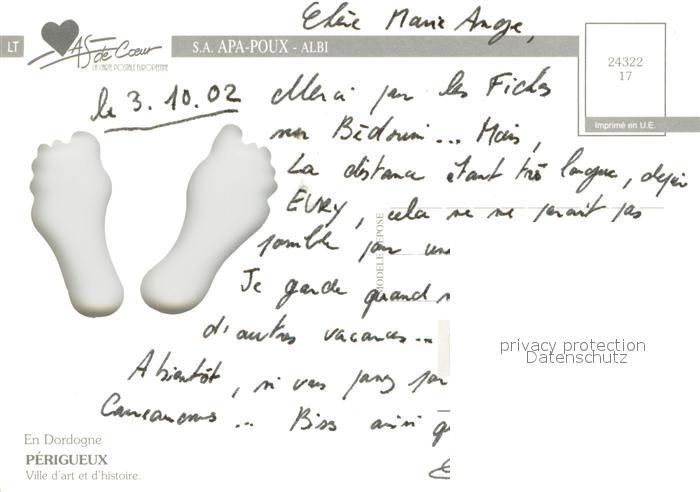 Chère Marie Ange,
LT
As de Cœur
LA CARTE POSTALE EUROPÉENNE
S.A. APA-POUX - ALBI
24322
17
Imprimé en U.E.
le 3.10.02
Merci pour les Fiches
sur Bédouin... Mais,
La distance étant très longue, déjà
EVRY, cela ne me paraît pas
possible pour une
MODELE DEPOSE
Je garde quand
d'autres vacances...
A bientôt, si vous
... Bises ainsi
privacy protection
Datenschutz
En Dordogne
PÉRIGUEUX
Ville d'art et d'histoire.